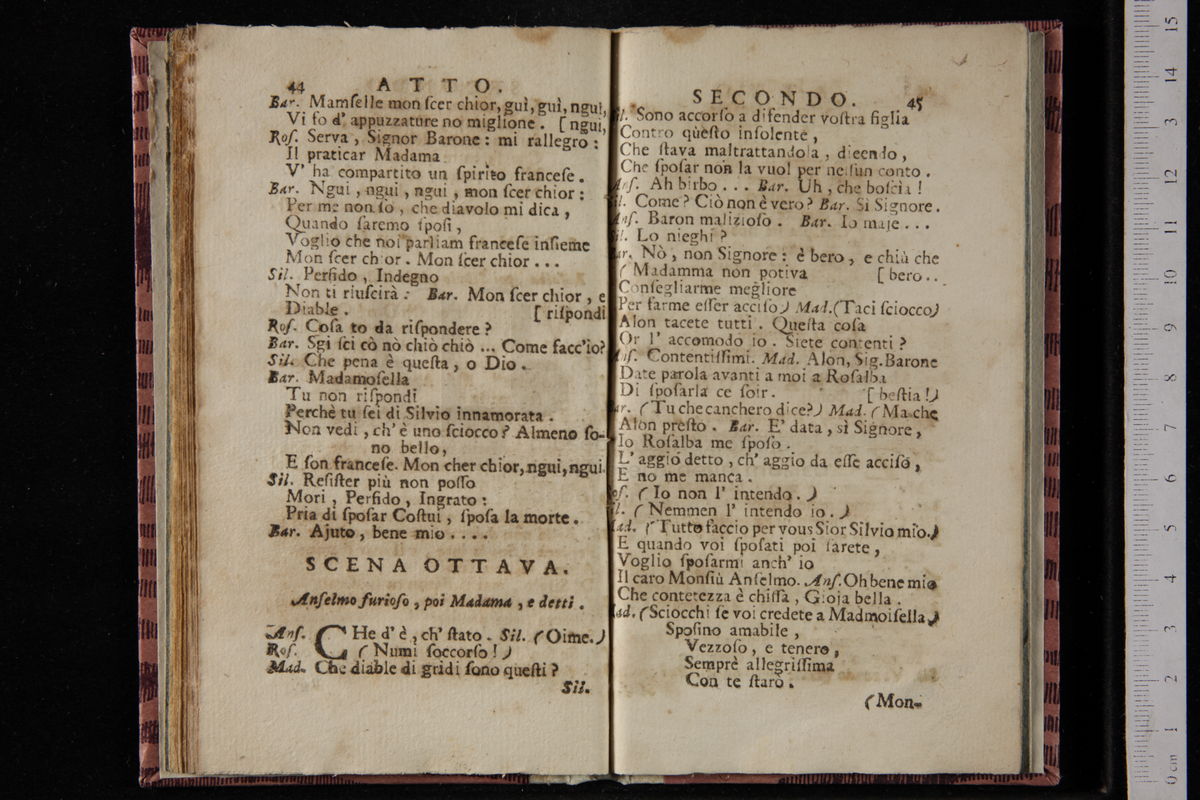 44 ATTO.
Bar. Mamſelle mon ſcer chior, guì, guì, nguì,
Vi fo d' appuzzature no miglione. [ nguì,
Roſ. Serva, Signor Barone: mi rallegro:
Il praticar Madama
V' ha compartito un ſpirito franceſe.
Bar. Ngui, ngui, ngui, mon ſcer chior:
Per me non ſò, che diavolo mi dica,
Quando ſaremo ſpoſi,
Voglio che noi parliam franceſe inſieme
Mon ſcer chior. Mon ſcer chior...
Sil. Perfido, Indegno
Non ti riuſcirà: Bar. Mon ſcer chior, e
Diable. [ riſpondi
Roſ. Coſa to da riſpondere?
Bar. Sgi ſci cò nò chiò chiò ... Come facc'io?
Sil. Che pena è queſta, o Dio.
Bar. Madamoſella
Tu non riſpondi
Perchè tu ſei di Silvio innamorata.
Non vedi, ch' è uno ſciocco? Almeno ſo-
no bello,
E ſon franceſe. Mon cher chior, ngui, ngui.
Sil. Reſiſter più non poſſo
Mori, Perfido, Ingrato:
Pria di ſpoſar Coſtui, ſpoſa la morte.
Bar. Ajuto, bene mio....
SCENA OTTAVA.
Anſelmo furioſo, poi Madama, e detti.
Anſ. CHe d' è, ch' ſtato. Sil. (Oime.)
Roſ. (Numi ſoccorſo!)
Mad. Che diable di gridi ſono queſti?
Sil.
SECONDO. 45
Sil. Sono accorſo a difender voſtra figlia
Contro queſto inſolente,
Che ſtava maltrattandola, dicendo,
Che ſpoſar non la vuol per neſſun conto.
Anſ. Ah birbo... Bar. Uh, che boſcia!
Sil. Come? Ciò non è vero? Bar. Si Signore.
Anſ. Baron malizioſo. Bar. Io maje...
Sil. Lo nieghi?
Bar. Nò, non Signore: è bero, e chiù che
(Madamma non potiva [ bero..
Conſegliarme megliore
Per farme eſſer acciſo) Mad. (Taci ſciocco)
Alon tacete tutti. Queſta coſa
Or l' accomodo io. Siete contenti?
Anſ. Contentiſſimi. Mad. Alon, Sig. Barone
Date parola avanti a moi a Roſalba
Di ſpoſarla ce ſoir. [ beſtia!)
Bar. (Tu che canchero dice?) Mad. (Ma che
Alon preſto. Bar. E' data, sì Signore,
Io Roſalba me ſpoſo.
L' aggio detto, ch' aggio da eſſe acciſo,
E no me manca.
Roſ. (Io non l' intendo.)
Sil. (Nemmen l' intendo io.)
Mad. (Tutto faccio per vous Sior Silvio mio.)
E quando voi ſpoſati poi ſarete,
Voglio ſpoſarmi anch' io
Il caro Monſiù Anſelmo. Anſ. Oh bene mio
Che contetezza è chiſſa, Gioja bella.
Mad. (Sciocchi ſe voi credete a Madmoiſella)
Spoſino amabile,
Vezzoſo, e tenero,
Semprè allegriſſima
Con te ſtarò.
(Mon-